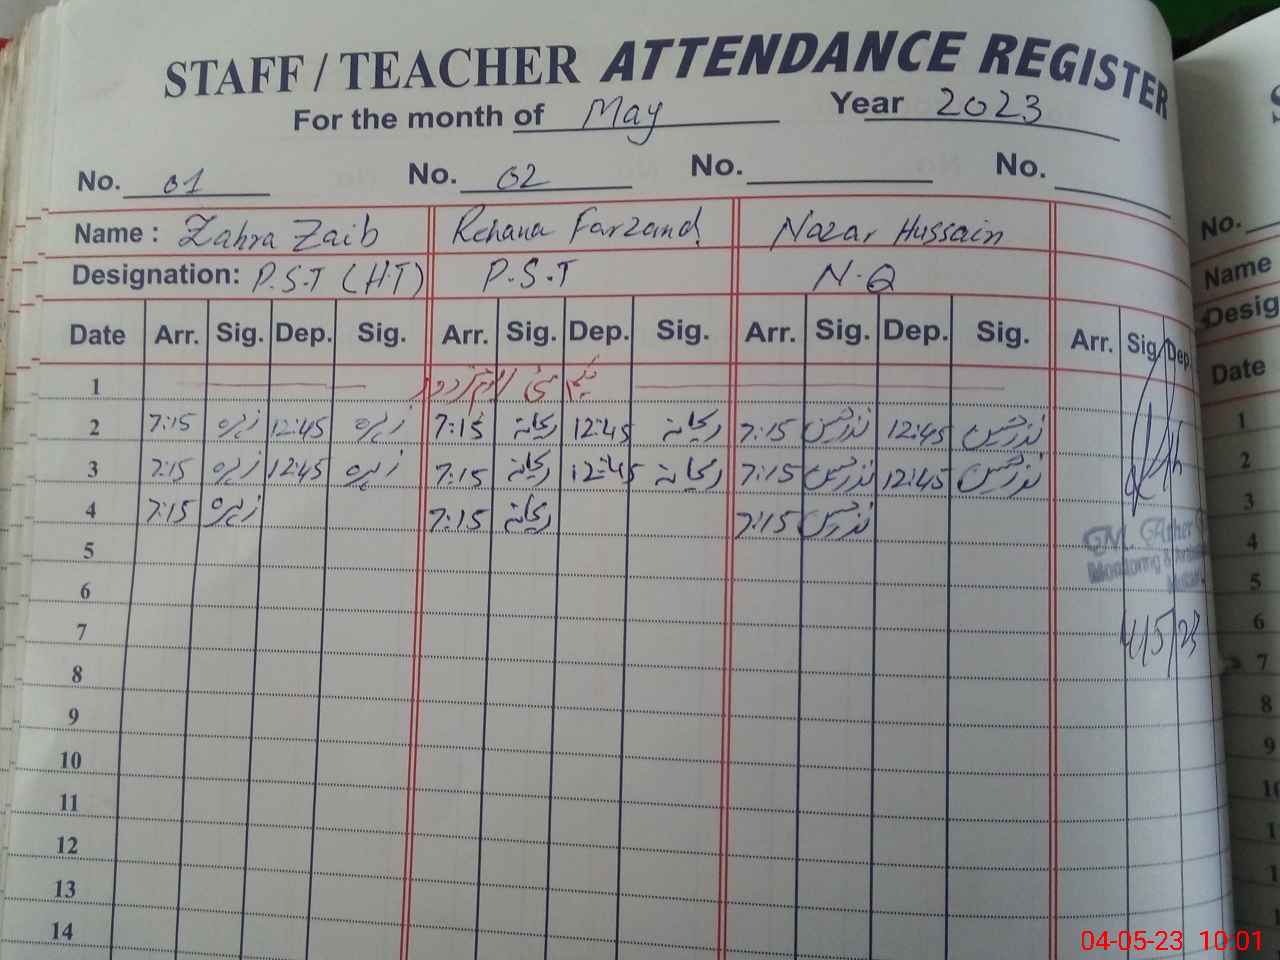 STAFF / TEACHER ATTENDANCE REGISTER
For the month of May Year 2023
No. 01 No. 02 No. No.
Name : Zahra Zaib Rehana Farzand Nazar Hussain
Designation: P.S.T (H.T) P.S.T N-Q
Date Arr. Sig. Dep. Sig. Arr. Sig. Dep. Sig. Arr. Sig. Dep. Sig. Arr. Sig. Dep.
1
2 7:15 زہرہ 12:45 زہرہ 7:15 ریحانہ 12:45 ریحانہ 7:15 نذر حسین 12:45 نذر حسین
3 7:15 زہرہ 12:45 زہرہ 7:15 ریحانہ 12:45 ریحانہ 7:15 نذر حسین 12:45 نذر حسین
4 7:15 زہرہ 7:15 ریحانہ 7:15 نذر حسین
M. Ather
5
Monitoring &
6
7 4/5/23
8
9
10
11
12
13
14
No.
Name
Desig
Date
1
2
3
4
5
6
7
8
9
04-05-23 10:01